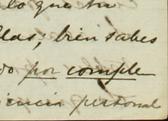 lo que tu
llas; bien sabes
do por comple
iencia personal